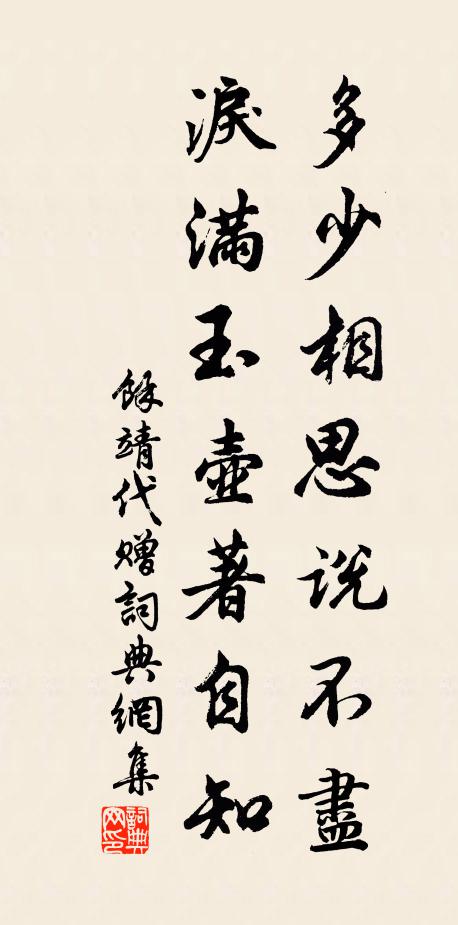 多少相思説不盡
淚滿玉壺著自知
餘靖代贈詞典網集
詞典
网印